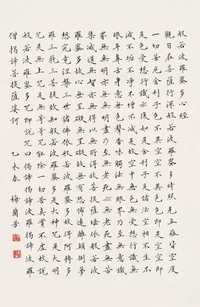 般若波羅蜜多心經
觀自在菩薩行深般若波羅蜜多時照見五蘊皆空度
一切苦厄舍利子色不異空空不異色色即是空空即
是色受想行識亦復如是舍利子是諸法空相不生不
滅不垢不淨不增不減是故空中無色無受想行識無
眼耳鼻舌身意無色聲香味觸法無眼界乃至無意識
界無無明亦無無明盡乃至無老死亦無老死盡無苦
集滅道無智亦無得以無所得故菩提薩埵依般若波
羅蜜多故心無罣礙無罣礙故無有恐怖遠離顛倒夢
想究竟涅槃三世諸佛依般若波羅蜜多故得阿耨多
羅三藐三菩提故知般若波羅蜜多是大神咒是大明
咒是無上咒是無等等咒能除一切苦真實不虛故說
般若波羅蜜多咒即說咒曰揭諦揭諦波羅揭諦波羅
僧揭諦菩提薩婆訶 乙未春 梅蘭芳